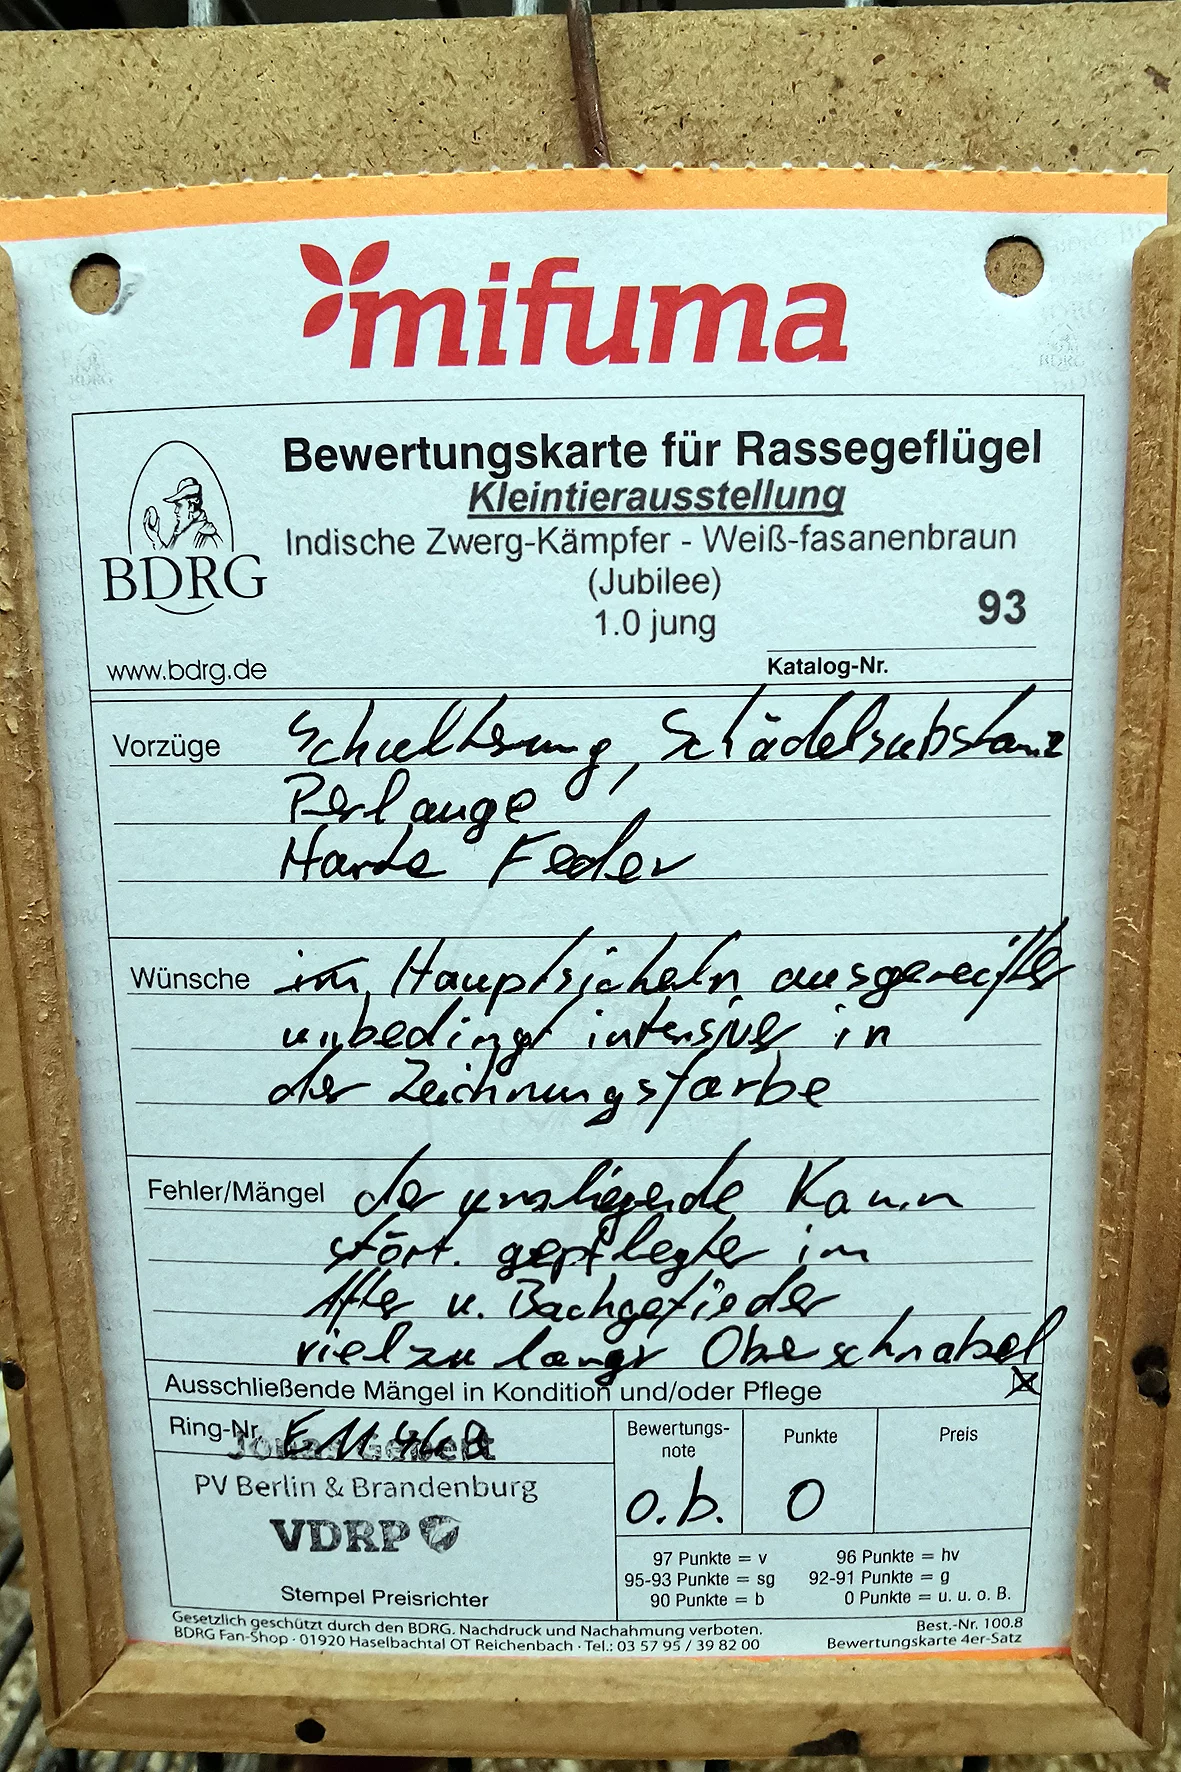 mifuma
Bewertungskarte für Rassegeflügel
Kleintierausstellung
Indische Zwerg-Kämpfer - Weiß-fasanenbraun
(Jubilee)
1.0 jung
93
BDRG
www.bdrg.de
Katalog-Nr.
Vorzüge Schulterung, Schädelsubstanz
Perlauge
Harte Feder
Wünsche im Hauptsicheln ausgereifter
unbedingt intensiver in
der Zeichnungsfarbe
Fehler/Mängel der umliegende Kamm
stört. gepflegter im
After u. Bachgefieder
viel zu langr Oberschnabel
Ausschließende Mängel in Kondition und/oder Pflege
Ring-Nr.
PV Berlin & Brandenburg
VDRP
Stempel Preisrichter
Bewertungs-
note
o.b.
Punkte
0
Preis
97 Punkte = v 96 Punkte = hv
95-93 Punkte = sg 92-91 Punkte = g
90 Punkte = b 0 Punkte = u. u. o. B.
Gesetzlich geschützt durch den BDRG. Nachdruck und Nachahmung verboten.
BDRG Fan-Shop · 01920 Haselbachtal OT Reichenbach · Tel.: 03 57 95 / 39 82 00
Best.-Nr. 100.8
Bewertungskarte 4er-Satz